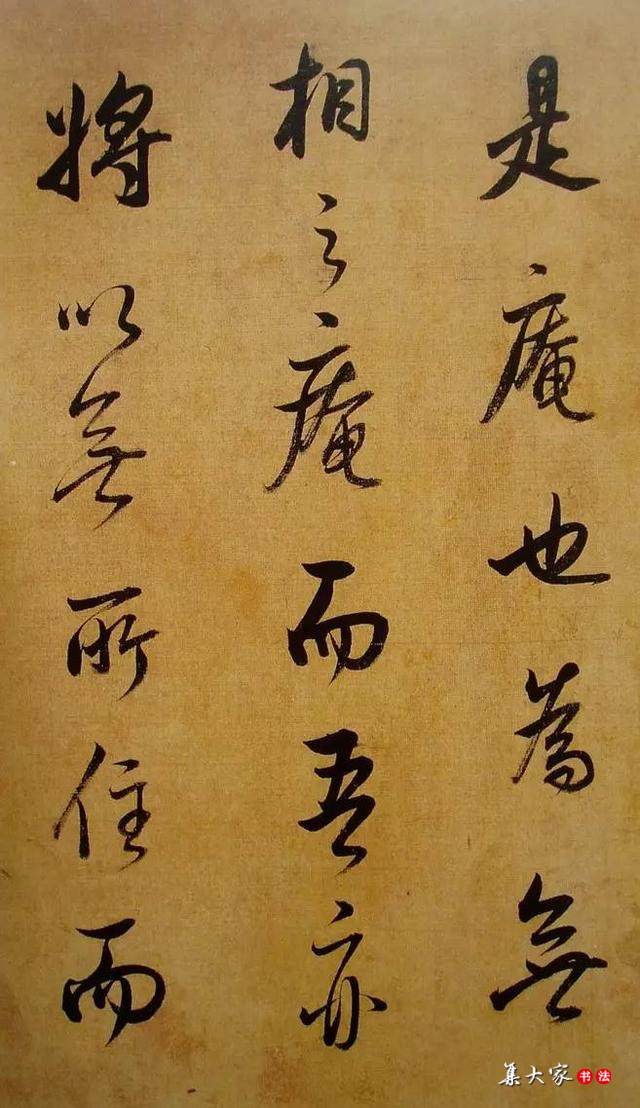 是庵也為無
相之庵而吾亦
將以無所住而
集大家书法